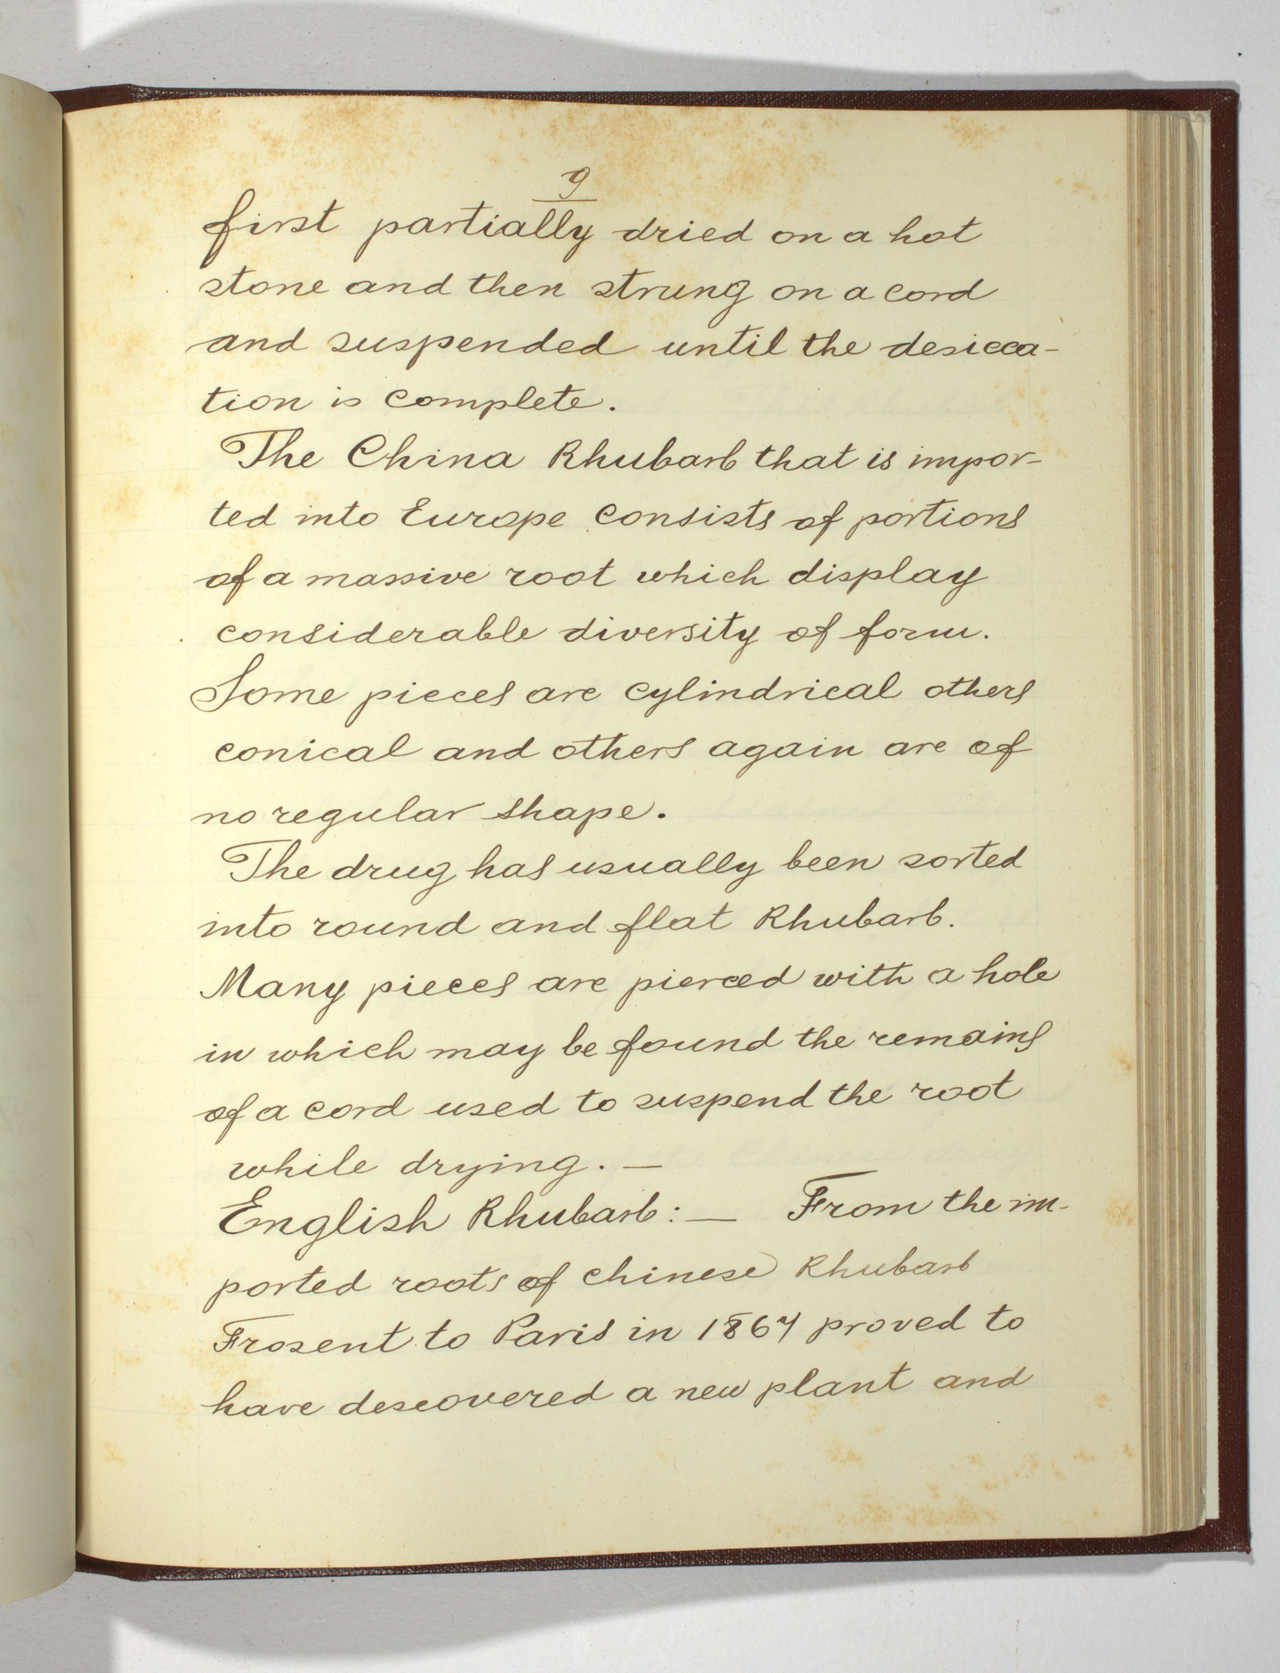 9
first partially dried on a hot
stone and then strung on a cord
and suspended until the desicca-
tion is complete.
The China Rhubarb that is impor-
ted into Europe consists of portions
of a massive root which display
considerable diversity of form.
Some pieces are cylindrical others
conical and others again are of
no regular shape.
The drug has usually been sorted
into round and flat Rhubarb.
Many pieces are pierced with a hole
in which may be found the remains
of a cord used to suspend the root
while drying. —
English Rhubarb: — From the im-
ported roots of chinese Rhubarb
Frosent to Paris in 1867 proved to
have descovered a new plant and